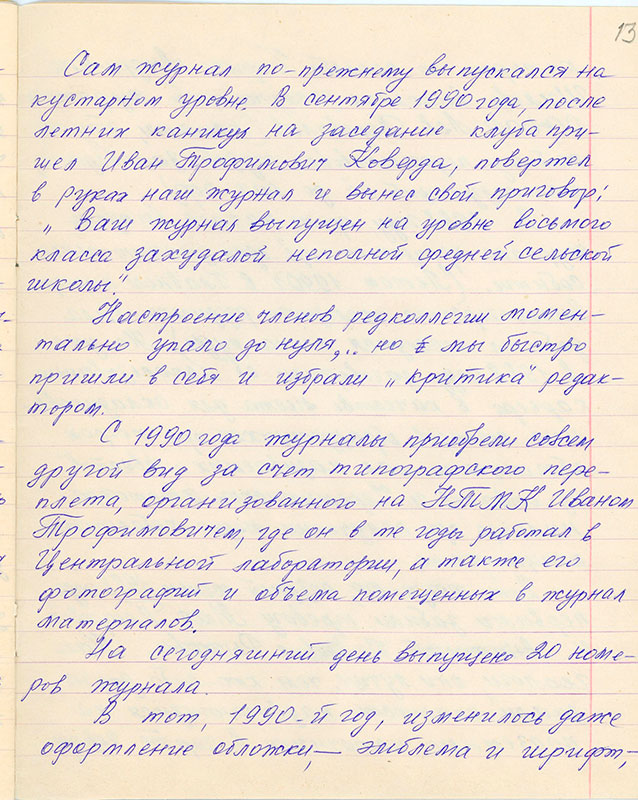 13
Сам журнал по-прежнему выпускался на
кустарном уровне. В сентябре 1990 года, после
летних каникул на заседание клуба при-
шел Иван Трофимович Коверда, повертел
в руках наш журнал и вынес свой приговор:
„Ваш журнал выпущен на уровне восьмого
класса захудалой неполной средней сельской
школы."
Настроение членов редколлегии момен-
тально упало до нуля,.. но мы быстро
пришли в себя и избрали „критика" редак-
тором.
С 1990 года журналы приобрели совсем
другой вид за счет типографского пере-
плета, организованного на НТМК Иваном
Трофимовичем, где он в те годы работал в
Центральной лаборатории, а также его
фотографий и объема помещенных в журнал
материалов.
На сегодняшний день выпущено 20 номе-
ров журнала.
В тот, 1990-й год, изменилось даже
оформление обложки, — эмблема и шрифт,